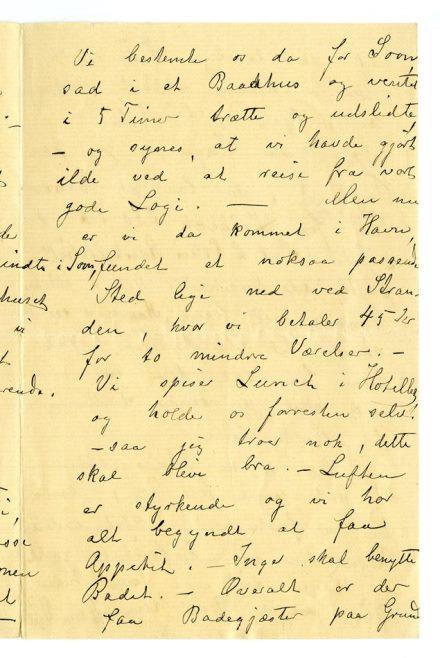 Vi bestemte os da for Soon,
sad i et Baadhus og ventet
i 5 Timer trætte og udslidte,
– og synes, at vi havde gjort
ilde ved at reise fra vort
gode Logi. — Men nu
er vi da kommet i Havn,
i Soon fundet et noksaa passende
Sted lige ned ved Stran-
den, hvor vi betaler 45 Kr
for to mindre Værelser. –
Vi spiser Lunch i Hotellet
og holde os forresten selv.
– saa jeg tror nok, dette
skal blive bra. – Luften
er styrkende og vi har
alt begyndt at faa
Appetit. – Inga skal benytte
Badet. – Overalt er der
faa Badegjæster paa Grund